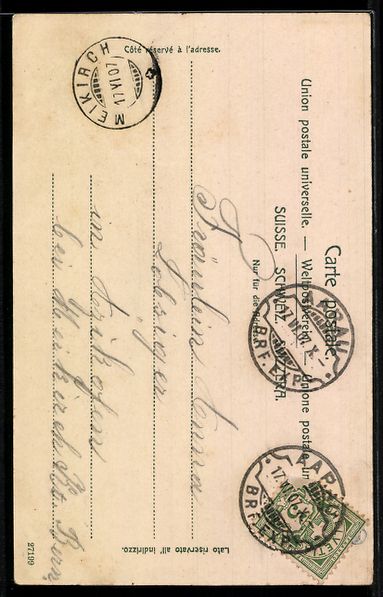 Carte postale.
Union postale universelle. — Weltpostverein. — Unione postale un
SUISSE. SCHWEIZ. SVIZZERA.
Nur für die Adresse
Côté réservé à l'adresse.
Lato riservato all' indirizzo.
AARAU
17.VI.
X
BRF.EXP.
AARAU
17.VI
X
BRF.EXP.
MEIKIRCH
17.VI.07
Fräulein Anna
Lobsiger
in
bei Meikirch Kt. Bern
27199